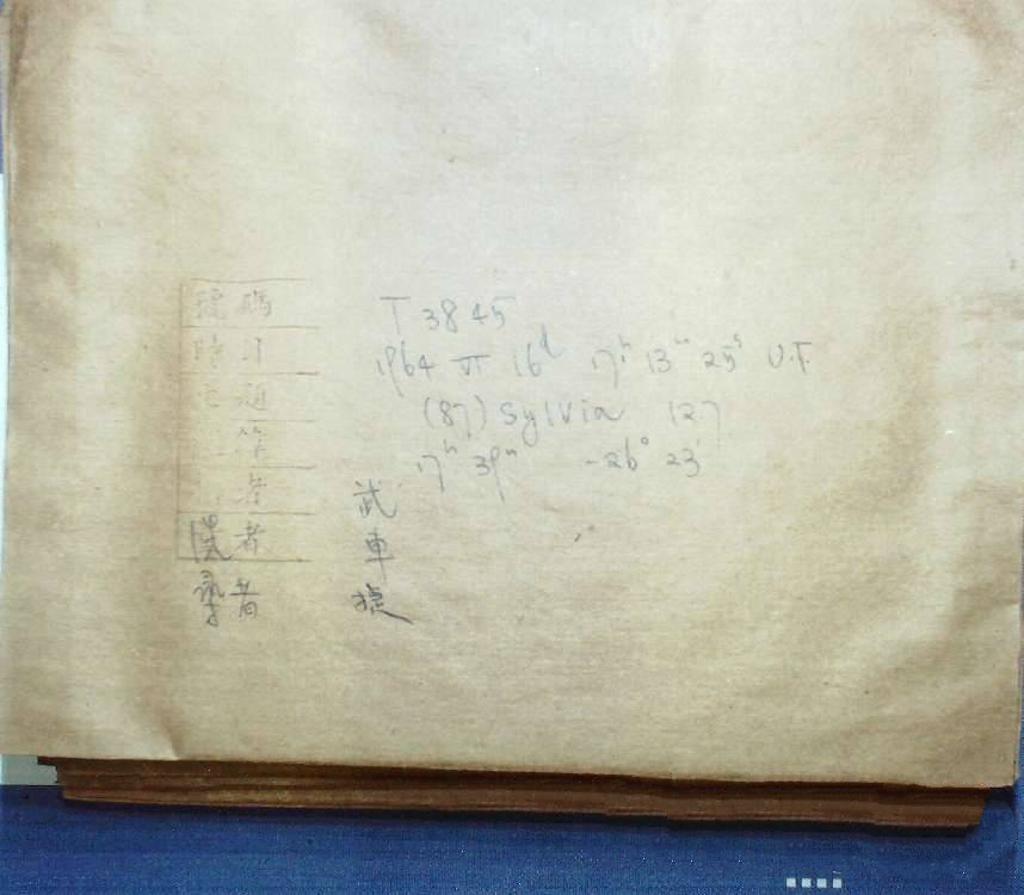 號碼 T 3845
時 1964 VI 16ᵈ 17ʰ 13ᵐ 25ˢ U.T.
(87) Sylvia 127
17ʰ 39ᵐ -26° 23'
者 武
者 車
者 捷